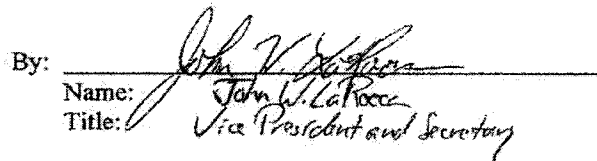 By: John W. LaRocca
Name: John W. LaRocca
Title: Vice President and Secretary